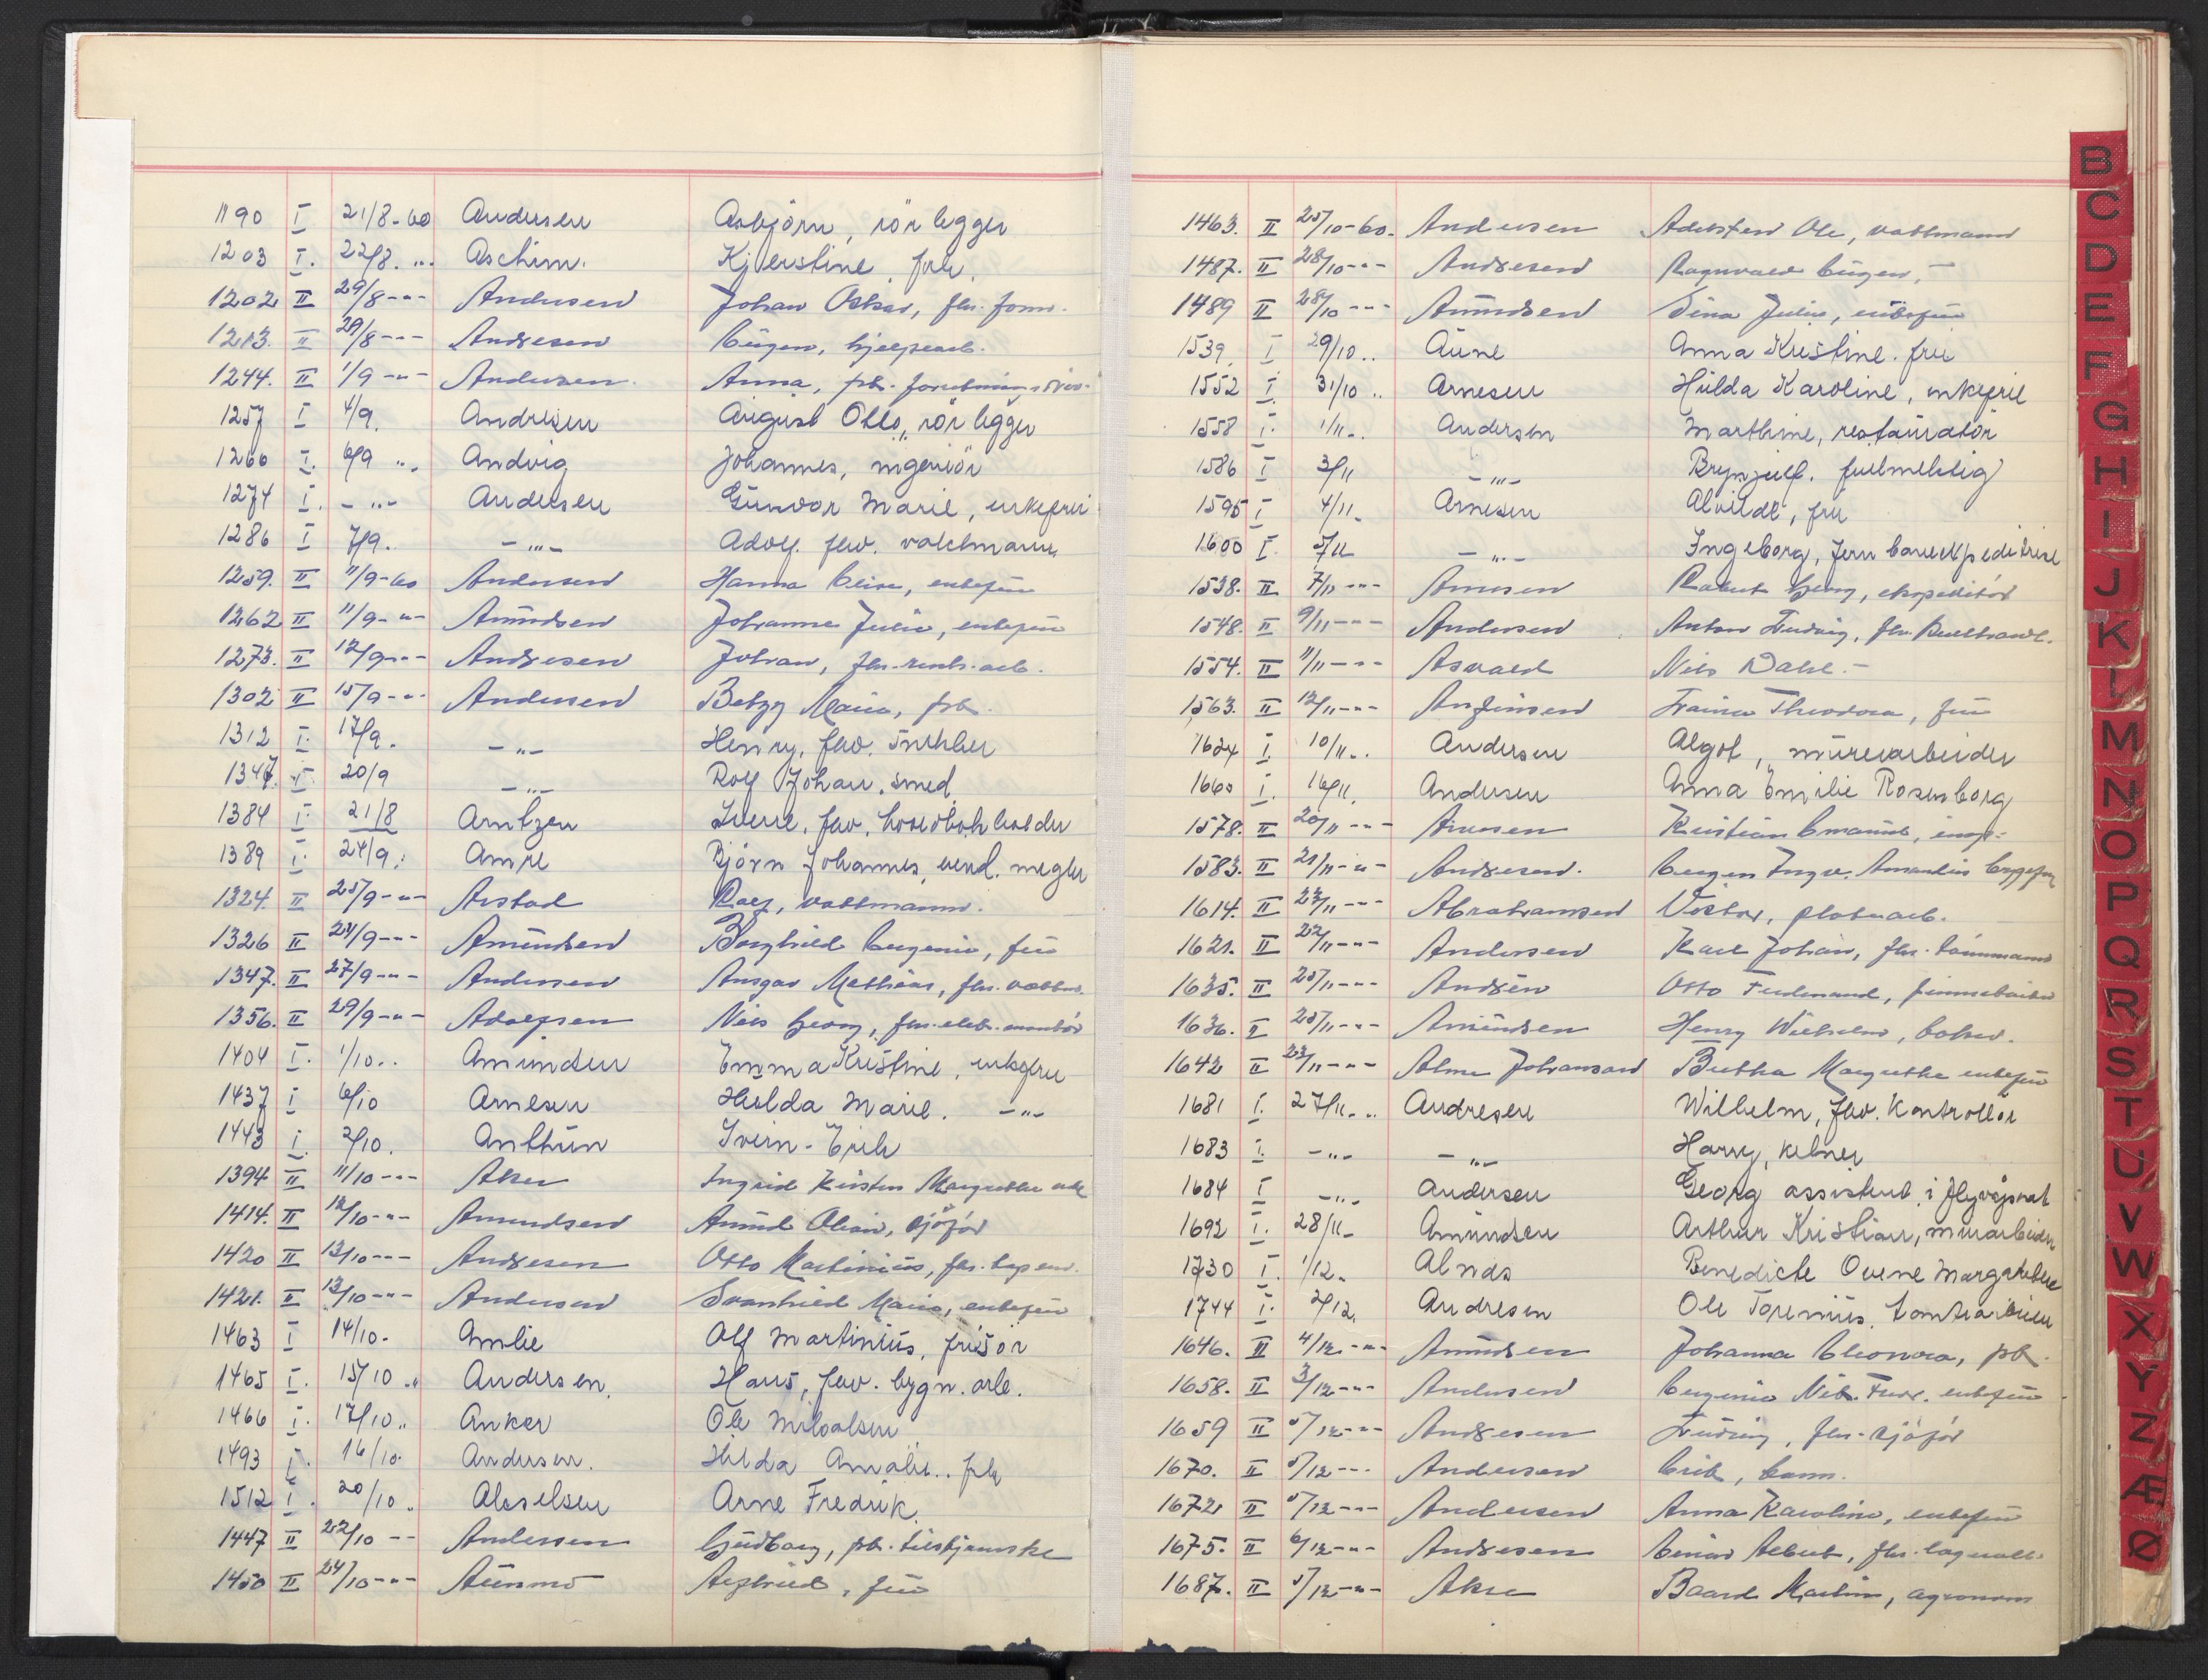 1190 I 21/8-60 Andersen Asbjörn, rörlegger
1203 I. 22/8. „. Aschim. Kjerstine, fru.
1202 II 29/8-„- Andersen Johan Oskar, fhv. form.
1213. II 29/8-„- Andresen Eugen, hjelpearb.
1244. II 1/9-„- Andersen. Anna, pb.
1257 I 4/9. Andresen August Otto, rörlegger
1266 I. 6/9 „. Andvig Johannes, ingeniör
1274 I. -„- Andersen Gunvor Marie, enkefru
1286 I 7/9. -„- Adolf. fhv. vaktmann
1259. II 11/9-60 Andersen Hanna Elise, enkefru
1262 II 11/9-„- Amundsen Johanne Julie, enkefru
1273. II 12/9-„- Andresen Johan, fhv. renh. arb.
1302 II 15/9-„- Andersen Betzy Marie, pb.
1312 I. 17/9. -„- Henry, fhv.
1347. I 20/9 -„- Rolf Johan, smed
1384 I. 21/8 Arntzen Sverre, fhv. hovedbokholder
1389 I. 24/9. Amre Björn Johannes, eiend. megler
1324. II 25/9-„- Arstad Rolf, vaktmann.
1326 II 23/9-„- Amundsen Borghild Eugenie, fru
1347. II 27/9-„- Andersen Ansgar Mathias, fhv. vaktm.
1356. II 29/9-„- Adolfsen Nils Georg, fhv. elek. montör
1404 I. 1/10.. Amundsen Emma Kristine, enkefru
1437 I 6/10 Arnesen Hilda Marie. -„-
1443 I. 2/10. Anthun Svein-Erik
1394 II 11/10-„- Aker Ingrid Kirsten Margrethe
1414. II 12/10-„- Amundsen Amund Olian, sjåför
1420 II 13/10-„- Andresen Otto Martinius, fhv.
1421. II 13/10-„- Andersen Svanhild Marie, enkefru
1463 I 14/10. Amlie Alf Martinius, frisör
1465 I. 15/10 „ Andersen. Hans, fhv. bygn. arb.
1466 I. 17/10 „ Anker Ole
1493 I. 16/10. Andersen. Hilda Amalie.. fru
1512 I. 20/10 „ Akselsen Arne Fredrik.
1447 II 22/10 -- Andersen Gudborg, pb.
1450 II 24/10-„- Aunmo Alfhild, fru
1463. II 25/10-60. Andersen Adelsten Ole, vaktmann
1487. II 28/10-„- Andresen Ragnvald Eugen, -
1489 II 28/10-„- Amundsen Sina Julie, enkefru
1539 I 29/10.. Aune Anna Kristine. fru
1552 I. 31/10 .. Arnesen Hulda Karoline, enkefru
1558 I. 1/11.. Andersen Marthine, restauratör
1586 I 3/11 -„- Brynjulf. fullmektig
1595 I 4/11. Arnesen Alvilde, fru
1600 I. 5/11 -„- Ingeborg, jernbaneexpeditrise
1538. II 7/11-„- Arnesen Robert Georg, ekspeditör
1548. II 9/11-„- Andersen Anton Ludvig, fhv.
1554. II 11/11-„- Asvald Nils Dahl.-
1563. II 12/11-„- Anfinsen Theodora, fru
1624 I. 10/11.. Andersen Algot, murerarbeider
1660 I. 16/11. Andersen Anna Emilie Rosenborg
1578. II 20/11-„- Arnesen Kristian Emanuel,
1583. II 21/11-„- Andresen. Eugen Ingv. Amandus
1614. II 23/11-„- Abrahamsen Viktor, platearb.
1621. II 22/11-„- Andersen Karl Johan, fhv. tömmermann
1635. II 25/11-„- Andrén Otto Ferdinand,
1636. II 25/11-„- Amundsen Henry Wilhelm,
1642 II 23/11-„- Alme Johansen Bertha Margrethe enkefru
1681 I. 27/11. .. Andresen Wilhelm, fhv. Kontrollör
1683 I. -„- -„- Harry, kelner
1684 I -„- Andersen Georg assistent i flyvåpnet
1692 I. 28/11. Amundsen Arthur Kristian, murarbeider
1730 I. 1/12. Alnæs Benedicte Ovene Margrethe
1744 I. 2/12. Andresen Ole
1646. II 4/12-„- Amundsen Johanna Eleonora, pb.
1658. II 3/12-„- Andersen Eugenie enkefru
1659 II 5/12-„- Andresen Ludvig, fhv. sjåför
1670. II 5/12-„- Andersen Erik,
1672 II 5/12-„- Andersen Anna Karoline, enkefru
1675. II 6/12-„- Andresen Einar Albert, fhv.
1687. II 5/12-„- Akre Baard Martin, agronom
B
C
D
E
F
G
H
I
J
K
L
M
N
O
P
Q
R
S
T
U
V
W
X
Y
Z
Æ
Ø